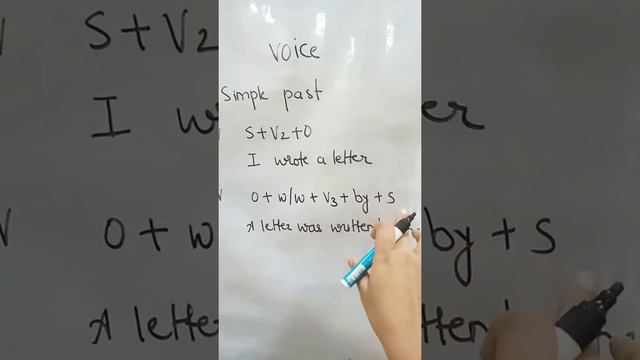 Voice
Simple past
S+V2+O
I wrote a letter
O + w/w + V3 + by + S
A letter was written